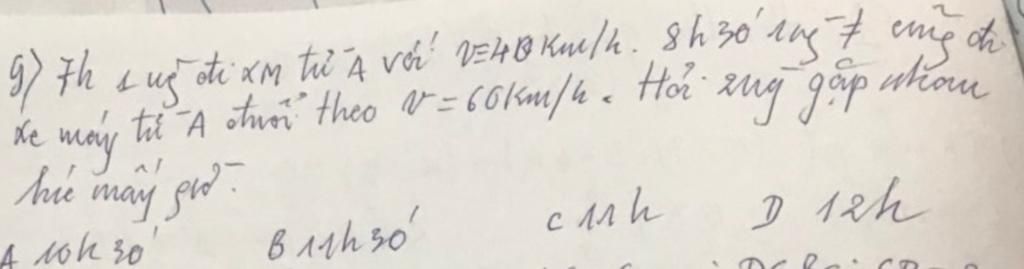 g) 7h 1 ng̃ đi XM từ A với v=40 Km/h. 8h30' 1 ng̃ ≠ cũng đi
xe máy từ A đuổi theo v=60Km/h. Hỏi 2 ng̃ gặp nhau
lúc mấy giờ.
A 10h30' B 11h30' C 11h D 12h